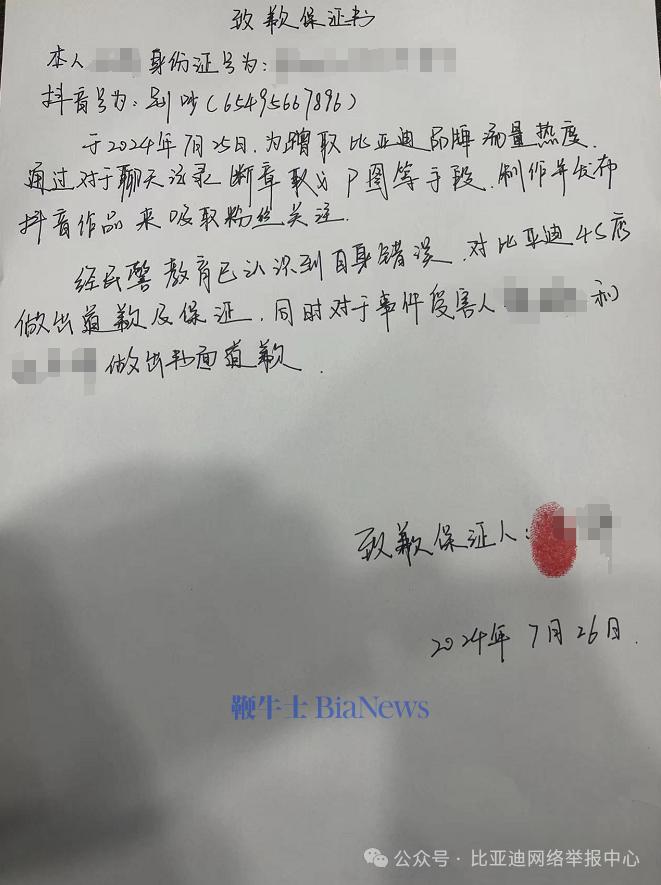 致歉保证书
本人 身份证号为:
抖音号为:别吵(65495667896)
于2024年7月25日,为蹭取比亚迪品牌流量热度,
通过对于聊天记录断章取义P图等手段,制作并发布
抖音作品来吸取粉丝关注.
经民警教育已认识到自身错误,对比亚迪4S店
做出道歉及保证,同时对于事件受害人 和
做出书面道歉.
致歉保证人:
2024年7月26日.
鞭牛士 BiaNews
公众号·比亚迪网络举报中心